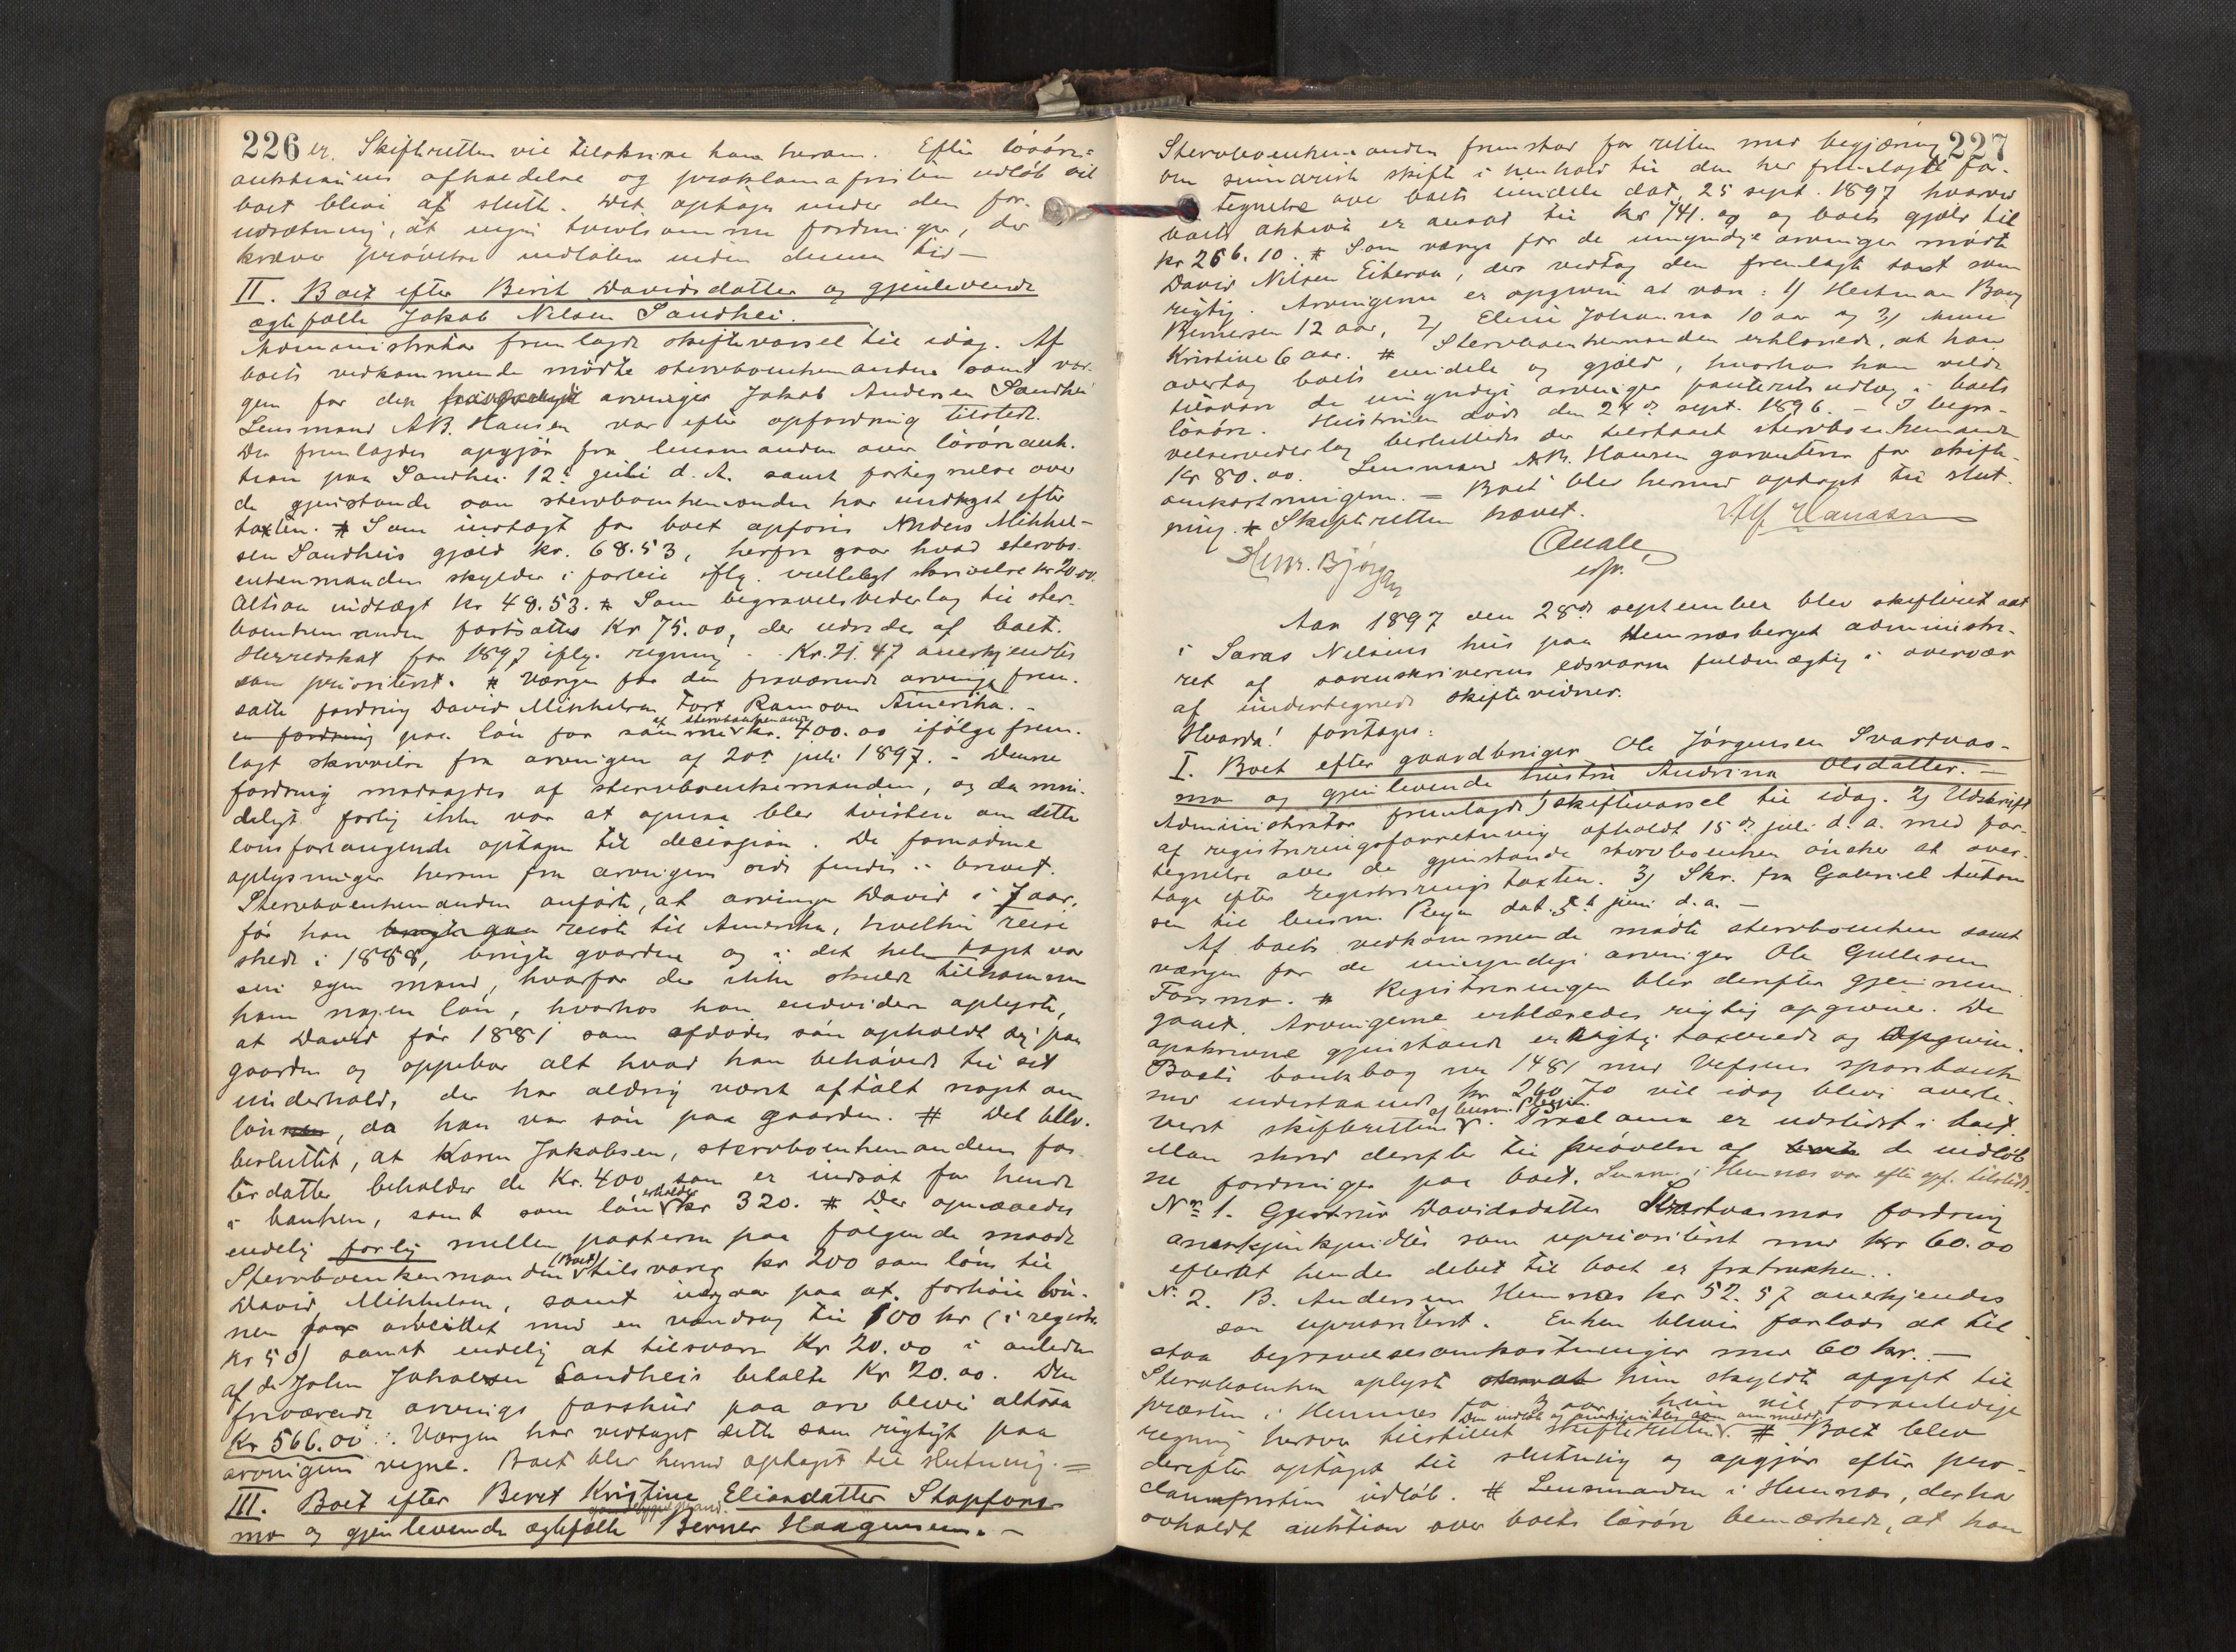 226 er. Skifteretten vil tilskrive ham herom. Efter løsøre-
auktionens afholdelse og proklamafristen udløb vil
boet blive at slutte. Det optages under den for-
udsætning, at ingen tvivlsomme fordringer, der
kræver prøvelse indløber inden denne tid —
II. Boet efter Berit Davidsdatter og gjenlevende
ægtefælle Jakob Nilsen Sandhei.
Administrator fremlagde skiftevarsel til idag. Af
boets vedkommende mødte stervboenkemanden samt vær-
gen for den fraværende arvinger Jakob Andersen Sandhei
Lensmand AB. Hansen var efter opfordring tilstede.
Der fremlagdes opgjør fra lensmanden over løsøreauk-
tion paa Sandhei 12te juli d. A. samt fortegnelse over
de gjenstande som stervboenkemanden har undtaget efter
taxten. # Som indtægt for boet opføres Anders Mikkel-
sen Sandheis gjæld kr. 68.53, herfra gaar hvad stervbo-
enkemanden skylder i forleie iflg. vedlagt skrivelse kr 20.00.
Altsaa indtægt kr 48.53. # Som begravelsvederlag til sterv-
boenkemanden fastsattes Kr 75.00, der udredes af boet.
Herredskat for 1897 iflg. regning - Kr. 21.47 anerkjendtes
som prioriteret. # Værgen for den fraværende arving frem-
satte fordring David Mikkelsen Fort Ramson Amerika. -
en fordring paa løn for samme af stervboenkemand kr. 400.00 ifølge frem-
lagt skrivelse fra arvingen af 20de juli 1897. - Denne
fordring modsagdes af stervboenkemanden, og da min-
deligt forlig ikke var at opnaa blev tvisten om dette
lønsforlangende optagen til decision. De fornødne
oplysninger herom fra arvingens side findes i brevet.
Stervboenkemanden anførte, at arvingen David i 7 aar,
før han reiste til Amerika, hvilken reise
skede i 1888, brugte gaarden og i det hele taget var
sin egen mand, hvorfor der ikke skulde tilkomme
ham nogen løn, hvorhos han endvidere oplyste,
at David før 1881 som afdødes søn opholdt sig paa
gaarden og oppebar alt hvad han behøvede til sit
underhold, der har aldrig været aftalt noget om
løn, da han var søn paa gaarden. # Det blev
besluttet, at Karen Jakobsen, stervboenkemandens fos-
terdatter beholder de Kr. 400 som er indsat for hende
i banken, samt som løn erholder kr 320. # Der opnaaedes
endelig forlig mellem parterne paa følgende maade
Stervboenkemanden (Boet) tilsvarer kr 200 som løn til
David Mikkelsen, samt indgaar paa at forhøie løn-
nen for arbeidet med en vandrag til 100 kr (i registr.
kr 50) samt endelig at tilsvare Kr 20.00 i anledn
af de John Jakobsen Sandheis betalte Kr 20.00. Den
fraværende arvings forskud paa arv bliver altsaa
Kr 566.00. Værgen har vedtaget dette som rigtigt paa
arvingens vegne. Boet blev hermed optaget til slutning. =
III. Boet efter Beret Kristine Eliasdatter Stapfors-
mo og gjenlevende ægtefælle gaardbrugermand Berner Haagensen. -
227
Stervboenkemanden fremstod for retten med begjæring
om summarisk skifte i henhold til den her fremlagte for-
tegnelse over boets eiendele dat. 25 sept. 1897 hvorved
boets aktiva er ansat til kr 741.00 og boets gjæld til
kr 266.10. # Som værge for de umyndige arvinger mødte
David Nilsen Eiteraa, der vedtog den fremlagte taxt som
rigtig. Arvingerne er opgivne at være: 1) Hertman Bang
Bernersen 12 aar, 2) Eline Johanna 10 aar og 3) Anne
Kristine 6 aar. # Stervboenkemanden erklærede, at han
overtog boets eiendele og gjæld, hvorhos han vilde
tilsvare de umyndige arvinger panteretsudlæg i boets
løsøre. Hustruen døde den 24de sept. 1896. - I begra-
velsesvederlag besluttedes der tilstaaet stervboenkemanden
Kr 80.00. Lensmand AB. Hansen garanterer for skifte-
omkostningerne. = Boet blev hermed optaget til slut-
ning. # Skifteretten hævet.
Alf Hanssen
Aaale
edsv.
Henr. Bjørgen
Aar 1897 den 28de september blev skifteret sat
i Saras Nilsens hus paa Hemnæsberget administre-
ret af sorenskriverens edsvorne fuldmægtig i overvær
af undertegnede skiftevidner.
Hvorda! foretages:
I. Boet efter gaardbruger Ole Jørgensen Svartvas-
mo og gjenlevende hustru Andrina Olsdatter. —
Administrator fremlagde 1) skiftevarsel til idag. 2) Udskrift
af registreringsforretning afholdt 15de juli d. a. med for-
tegnelse over de gjenstande stervboenken ønsker at over-
tage efter registreringstaxten. 3) Skr. fra Gabriel Anton
sen til lensm. Pleym dat. 5te juni d. a. —
Af boets vedkommende mødte stervboenken samt
værgen for de umyndige arvinger Ole Gullesen
Forsmo. # Registreringen blev derefter gjennem-
gaaet. Arvingerne erklæredes rigtig opgivne. De
opskrevne gjenstande er rigtig taxerede og opgivne.
Boets bankbog nr 1481 med Vefsens sparebank
med indestaaende kr 260.70 vil idag blive overle-
veret skifteretten af lensm. Pleym. Proclama er udstedt i boet.
Man skred derefter til prøvelse af de indløb-
ne fordringer paa boet. Lensm. i Hemnæs var efter opf. tilstede.
No 1. Gjertrud Davidsdatter Svartvasmos fordring
anerkjendtes som uprioriteret med kr 60.00
efterat hendes debet til boet er fratrukken..
No 2. B. Andersen Hemnæs kr 52.57 anerkjendes
som uprioriteret. Enken bliver forlods at til-
staa begravelsesomkostninger med 60 kr. —
Stervboenken oplyste hun skyldte afgift til
præsten i Hemnes for 3 aar hun vil foranledige
regning herover tilstillet skifteretten Den indløb og anerkjendtes som anmeldt. # Boet blev
derefter optaget til slutning og opgjør efter pro-
clamafristens udløb. # Lensmanden i Hemnæs, der har
avholdt auktion over boets løsøre bemærkede, at han